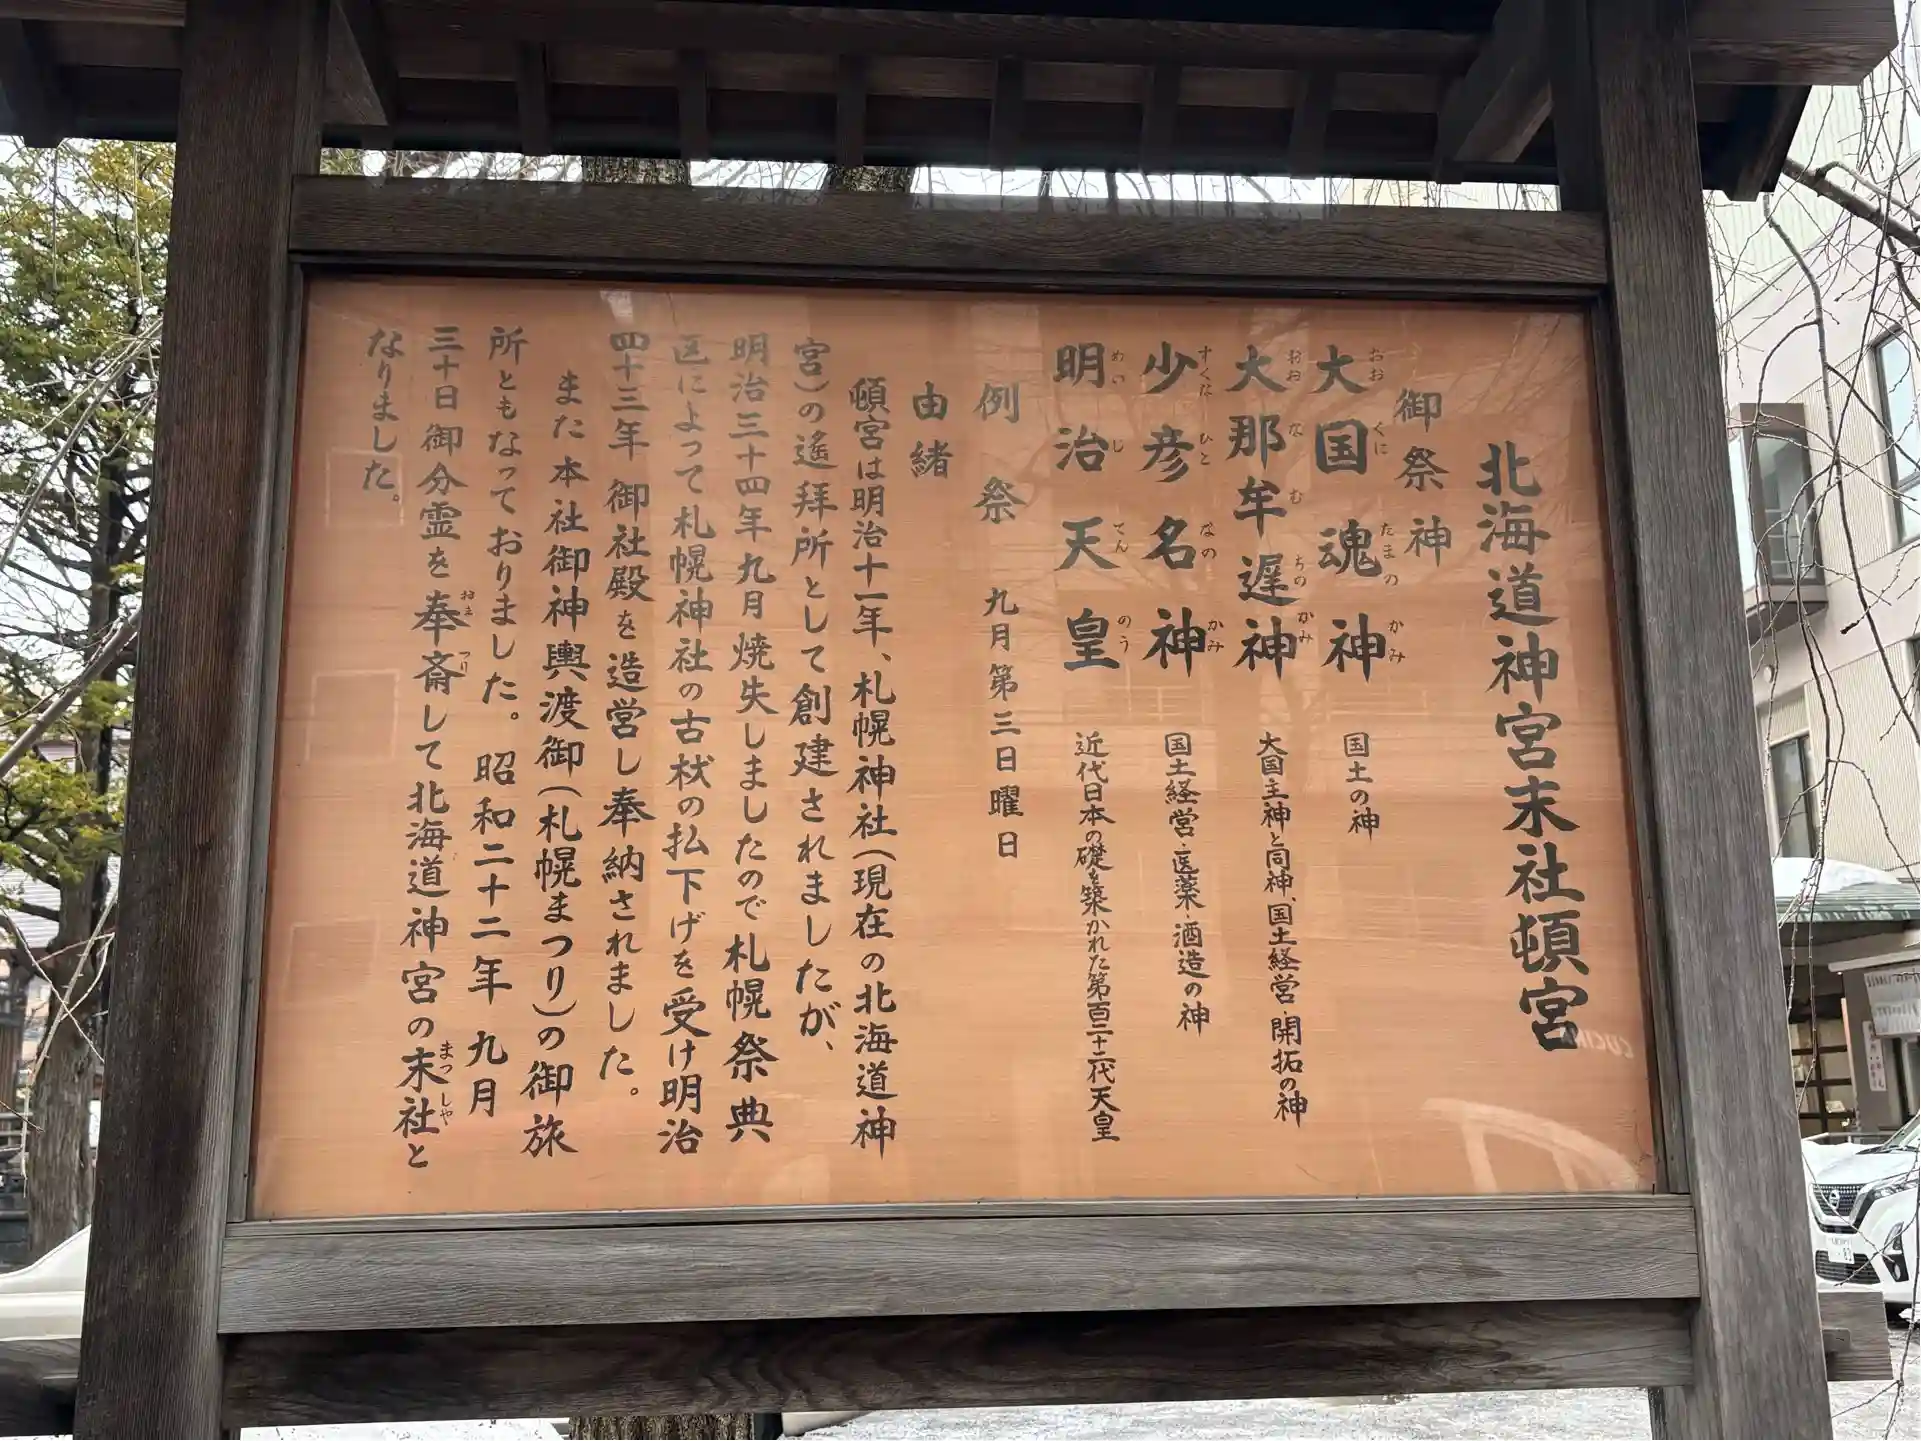 北海道神宮末社頓宮
御祭神
大国魂神 国土の神
おお くに たまの かみ
大那牟遅神 大国主神と同神、国土経営・開拓の神
おお な む ちの かみ
少彦名神 国土経営・医薬・酒造の神
すくな ひこ なの かみ
明治天皇 近代日本の礎を築かれた第百二十二代天皇
めい じ てん のう
例祭 九月第三日曜日
由緒
頓宮は明治十一年、札幌神社(現在の北海道神
宮)の遙拝所として創建されましたが、
明治三十四年九月焼失しましたので札幌祭典
区によって札幌神社の古材の払下げを受け明治
四十三年御社殿を造営し奉納されました。
また本社御神輿渡御(札幌まつり)の御旅
所ともなっておりました。昭和二十二年九月
三十日御分霊を奉斎して北海道神宮の末社と
おま つり まっ しゃ
なりました。